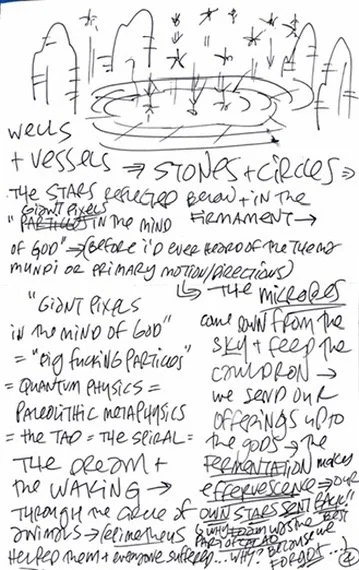 wells
+ vessels ⇒ STONES + CIRCLES ⇒
THE STARS REFLECTED BELOW + IN THE
GIANT PIXELS
" PARTICLES IN THE MIND FIRMAMENT →
OF GOD" ⇒ (BEFORE I'D EVER HEARD OF THE THEMA
MUNDI OR PRIMARY MOTION/DIRECTIONS)
"GIANT PIXELS
IN THE MIND OF GOD"
= "BIG FUCKING PARTICLES"
= QUANTUM PHYSICS =
PALEOLITHIC METAPHYSICS
= THE TAO = THE SPIRAL =
THE DREAM +
THE WAKING →
THROUGH THE CIRCLE OF
ANIMALS → EPIMETHEUS
HELPED THEM + EVERYONE SUFFERED... WHY? BECAUSE WE
FORGOT...
↳ THE MICROBES
COME DOWN FROM THE
SKY + FEED THE
CAULDRON →
WE SEND OUR
OFFERINGS UP TO
THE GODS → THE
FERMENTATION MAKES
EFFERVESCENCE → OUR
OWN STARS SENT BACK!!
WHY WAS THE BEST
PART OF
2